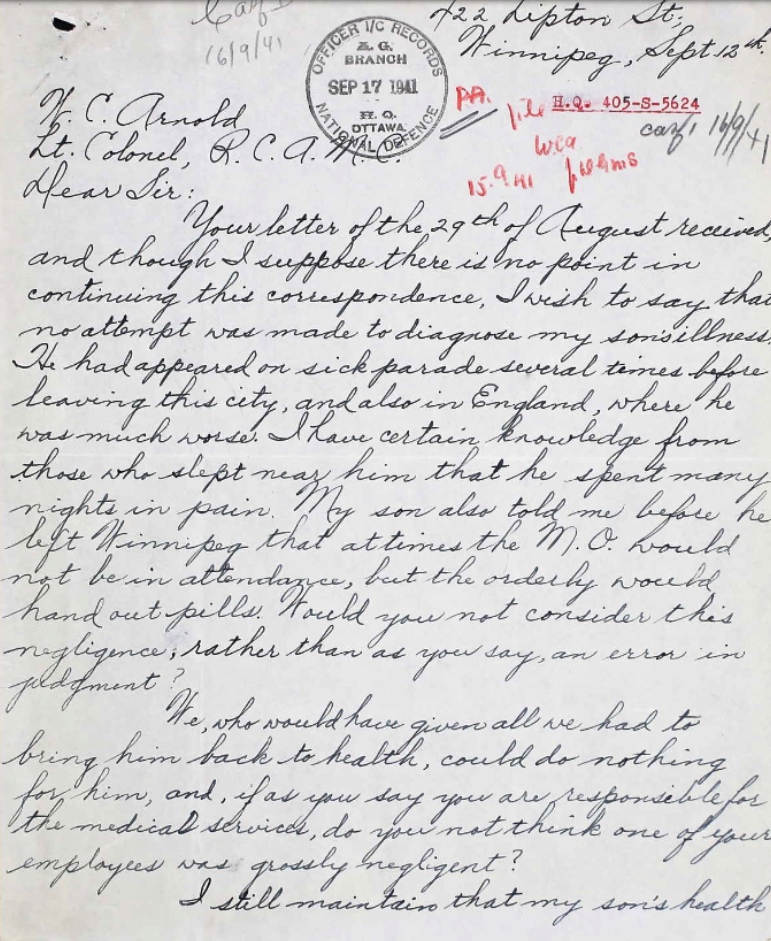 422 Lipton St;
16/9/41
Winnipeg, Sept. 12th.
OFFICER I/C RECORDS
A. G.
BRANCH
SEP 17 1941
H. Q.
OTTAWA
NATIONAL DEFENCE
P.A.
file
H.Q. 405-S-5624
16/9/41
wca
15.9.41
W. C. Arnold
Lt. Colonel, R. C. A. M. C.
Dear Sir:
Your letter of the 29th of August received,
and though I suppose there is no point in
continuing this correspondence, I wish to say that
no attempt was made to diagnose my son's illness.
He had appeared on sick parade several times before
leaving this city, and also in England, where he
was much worse. I have certain knowledge from
those who slept near him that he spent many
nights in pain. My son also told me before he
left Winnipeg that at times the M.O. would
not be in attendance, but the orderly would
hand out pills. Would you not consider this
negligence; rather than as you say, an error in
judgment?
We, who would have given all we had to
bring him back to health, could do nothing
for him, and, if as you say you are responsible for
the medical services, do you not think one of your
employees was grossly negligent?
I still maintain that my son's health